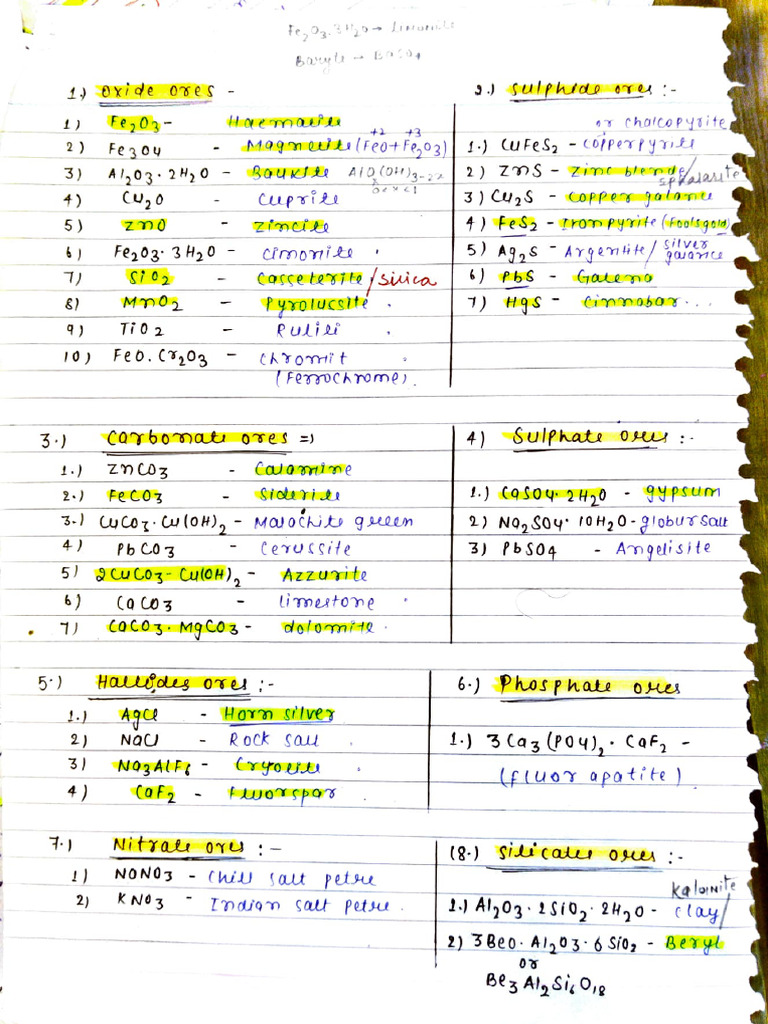 Fe2O3.3H2O → Limonite
Baryte → BaSO4
1.) Oxide ores -
1) Fe2O3 - Haematite
2) Fe3O4 - Magnetite (FeO + Fe2O3) +2 +3
3) Al2O3 . 2H2O - Bauxite AlOx(OH)3-2x
0<x<1
4) Cu2O - Cuprite
5) ZnO - Zincite
6) Fe2O3 . 3H2O - Limonite
7) SiO2 - Casseterite / Silica
8) MnO2 - Pyrolussite
9) TiO2 - Rulile
10) FeO.Cr2O3 - Chromit
(Ferrochrome).
2.) Sulphide ores :-
or chalcopyrite
1.) CuFeS2 - Copperpyrite
2) ZnS - Zinc blende /
3) Cu2S - Copper galance
4) FeS2 - Ironpyrite (Foolsgold)
5) Ag2S - Argentite / silver galance
6) PbS - Galena
7) HgS - Cinnabar...
3.) Carbonate ores =)
1.) ZnCO3 - Calamine
2.) FeCO3 - Siderite
3.) CuCO3 . Cu(OH)2 - Malachite green
4) PbCO3 - Cerussite
5) 2CuCO3 - Cu(OH)2 - Azzurite
6) CaCO3 - limestone
7) CaCO3 . MgCO3 - dolomite
4) Sulphate ores :-
1.) CaSO4 . 2H2O - gypsum
2) Na2SO4 . 10H2O - globur salt
3) PbSO4 - Angelisite
5.) Hallides ores :-
1.) AgCl - Horn silver
2) NaCl - Rock salt
3) Na3AlF6 - Cryolite
4) CaF2 - Fluorspar
6.) Phosphate ores
1.) 3Ca3(PO4)2 . CaF2 -
(fluor apatite)
7.) Nitrate ores :-
1) NaNO3 - Chill salt petre
2) KNO3 - Indian salt petre.
(8.) Silicates ores :-
kaloinite
1.) Al2O3 . 2SiO2 . 2H2O - clay /
2) 3BeO . Al2O3 . 6SiO2 - Beryl
or
Be3Al2Si6O18